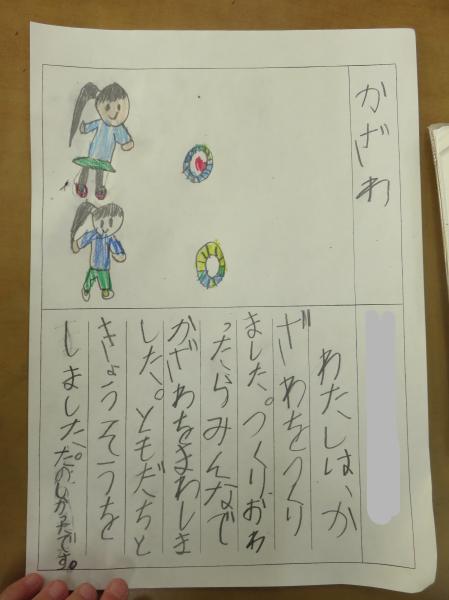 かざわ
わたしは、か
ざわをつくり
ました。つくりおわ
ったらみんなで
かざわをまわしま
した。ともだちと
きょうそうを
しました。たのしかったです。